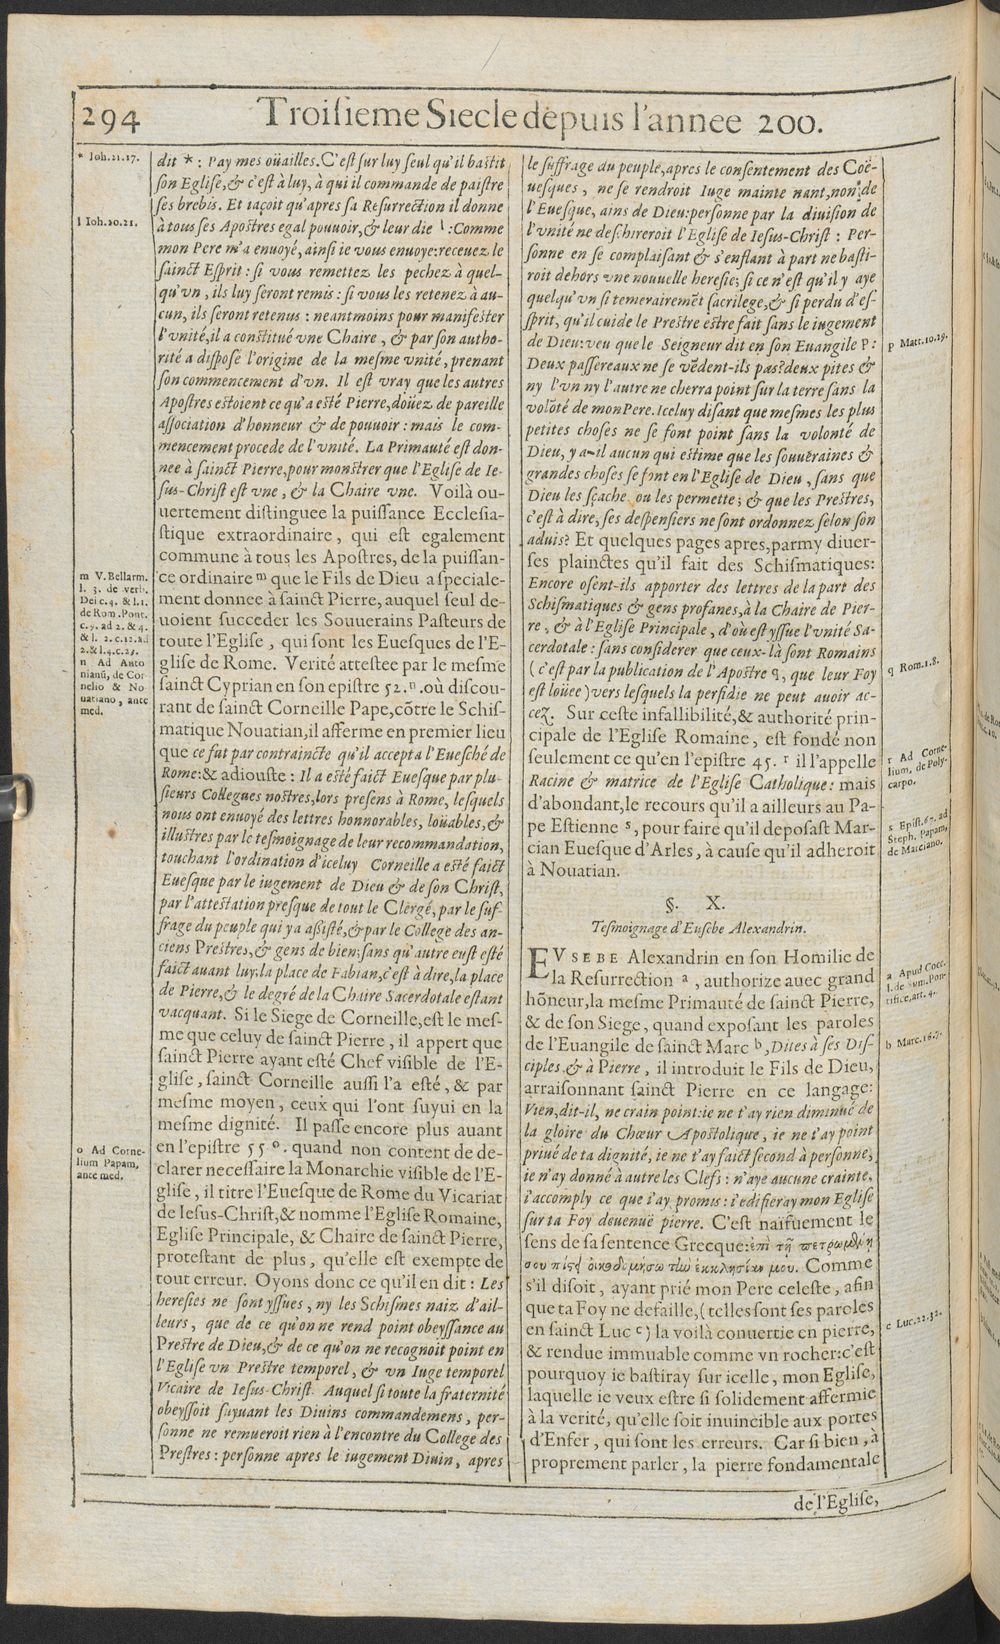 294
Troisieme Siecle depuis l'annee 200.
* Ioh.21.17.
l Ioh.20.21.
m V. Bellarm.
l. 3. de verb.
Dei c.4. & l.1.
de Rom. Pont.
c.9. ad 2. & 4.
& l. 2. c.12. ad
2. & l.4. c.25.
n Ad Anto
nianũ, de Cor
nelio & No
uatiano, ante
med.
o Ad Corne-
lium Papam,
ante med.
dit * : Pay mes oüailles. C'est sur luy seul qu'il bastit
son Eglise, & c'est à luy, à qui il commande de paistre
ses brebis. Et iaçoit qu'apres sa Resurrection il donne
à tous ses Apostres egal pouuoir, & leur die l : Comme
mon Pere m'a enuoyé, ainsi ie vous enuoye: receuez le
sainct Esprit : si vous remettez les pechez à quel-
qu'vn, ils luy seront remis : si vous les retenez à au-
cun, ils seront retenus : neantmoins pour manifester
l'vnité, il a constitué vne Chaire, & par son autho-
rité a disposé l'origine de la mesme vnité, prenant
son commencement d'vn. Il est vray que les autres
Apostres estoient ce qu'a esté Pierre, doüez de pareille
association d'honneur & de pouuoir : mais le com-
mencement procede de l'vnité. La Primauté est don-
nee à sainct Pierre, pour monstrer que l'Eglise de Ie-
sus-Christ est vne, & la Chaire vne. Voilà ou-
uertement distinguee la puissance Ecclesia-
stique extraordinaire, qui est egalement
commune à tous les Apostres, de la puissan-
ce ordinaire m que le Fils de Dieu a speciale-
ment donnee à sainct Pierre, auquel seul de-
uoient succeder les Souuerains Pasteurs de
toute l'Eglise, qui sont les Euesques de l'E-
glise de Rome. Verité attestee par le mesme
sainct Cyprian en son epistre 52. n . où discou-
rant de sainct Corneille Pape, cõtre le Schis-
matique Nouatian, il afferme en premier lieu
que ce fut par contraincte qu'il accepta l'Euesché de
Rome: & adiouste : Il a esté faict Euesque par plu-
sieurs Collegues nostres, lors presens à Rome, lesquels
nous ont enuoyé des lettres honnorables, loüables, &
illustres par le tesmoignage de leur recommandation,
touchant l'ordination d'iceluy Corneille a esté faict
Euesque par le iugement de Dieu & de son Christ,
par l'attestation presque de tout le Clergé, par le suf-
frage du peuple qui y a assisté, & par le College des an-
ciens Prestres, & gens de bien: sans qu'autre eust esté
faict auant luy: la place de Fabian, c'est à dire, la place
de Pierre, & le degré de la Chaire Sacerdotale estant
vacquant. Si le Siege de Corneille, est le mes-
me que celuy de sainct Pierre, il appert que
sainct Pierre ayant esté Chef visible de l'E-
glise, sainct Corneille aussi l'a esté, & par
mesme moyen, ceux qui l'ont suyui en la
mesme dignité. Il passe encore plus auant
en l'epistre 55 o. quand non content de de-
clarer necessaire la Monarchie visible de l'E-
glise, il titre l'Euesque de Rome du Vicariat
de Iesus-Christ, & nomme l'Eglise Romaine,
Eglise Principale, & Chaire de sainct Pierre,
protestant de plus, qu'elle est exempte de
tout erreur. Oyons donc ce qu'il en dit : Les
heresies ne sont yssues, ny les Schismes naiz d'ail-
leurs, que de ce qu'on ne rend point obeyssance au
Prestre de Dieu, & de ce qu'on ne recognoit point en
l'Eglise vn Prestre temporel, & vn Iuge temporel
Vicaire de Iesus-Christ. Auquel si toute la fraternité
obeyssoit suyuant les Diuins commandemens, per-
sonne ne remueroit rien à l'encontre du College des
Prestres : personne apres le iugement Diuin, apres
le suffrage du peuple, apres le consentement des Coë-
uesques, ne se rendroit Iuge mainte nant, non de
l'Euesque, ains de Dieu: personne par la diuision de
l'vnité ne deschireroit l'Eglise de Iesus-Christ : Per-
sonne en se complaisant & s'enflant à part ne basti-
roit dehors vne nouuelle heresie; si ce n'est qu'il y aye
quelqu'vn si temerairemẽt sacrilege, & si perdu d'es-
sprit, qu'il cuide le Prestre estre fait sans le iugement
de Dieu: veu que le Seigneur dit en son Euangile p :
Deux passereaux ne se vẽdent-ils pas? deux pites &
ny l'vn ny l'autre ne cherra point sur la terre sans la
volõté de mon Pere. Iceluy disant que mesmes les plus
petites choses ne se font point sans la volonté de
Dieu, y a-il aucun qui estime que les souueraines &
grandes choses se font en l'Eglise de Dieu, sans que
Dieu les sçache ou les permette; & que les Prestres,
c'est à dire, ses despensiers ne sont ordonnez selon son
aduis? Et quelques pages apres, parmy diuer-
ses plainctes qu'il fait des Schismatiques:
Encore osent-ils apporter des lettres de la part des
Schismatiques & gens profanes, à la Chaire de Pier-
re, & à l'Eglise Principale, d'où est yssue l'vnité Sa-
cerdotale : sans considerer que ceux-là sont Romains
(c'est par la publication de l'Apostre q, que leur Foy
est loüee) vers lesquels la perfidie ne peut auoir ac-
cez. Sur ceste infallibilité, & authorité prin-
cipale de l'Eglise Romaine, est fondé non
seulement ce qu'en l'epistre 45. r il l'appelle
Racine & matrice de l'Eglise Catholique: mais
d'abondant, le recours qu'il a ailleurs au Pa-
pe Estienne s, pour faire qu'il deposast Mar-
cian Euesque d'Arles, à cause qu'il adheroit
à Nouatian.
§. X.
Tesmoignage d'Eusebe Alexandrin.
EVSEBE Alexandrin en son Homilie de
la Resurrection a, authorize auec grand
hõneur, la mesme Primauté de sainct Pierre,
& de son Siege, quand exposant les paroles
de l'Euangile de sainct Marc b, Dites à ses Dis-
ciples & à Pierre, il introduit le Fils de Dieu,
arraisonnant sainct Pierre en ce langage:
Vien, dit-il, ne crain point: ie ne t'ay rien diminué de
la gloire du Chœur Apostolique, ie ne t'ay point
priué de ta dignité, ie ne t'ay faict second à personne,
ie n'ay donné à autre les Clefs : n'aye aucune crainte,
i'accomply ce que i'ay promis: i'edifieray mon Eglise
sur ta Foy deuenuë pierre. C'est naïfuement le
sens de sa sentence Grecque: ἐπὶ τῇ πετρωθείσῃ
σου πίστει οἰκοδομήσω τὴν ἐκκλησίαν μου. Comme
s'il disoit, ayant prié mon Pere celeste, afin
que ta Foy ne defaille, (telles sont ses paroles
en sainct Luc c) la voilà conuertie en pierre,
& rendue immuable comme vn rocher: c'est
pourquoy ie bastiray sur icelle, mon Eglise,
laquelle ie veux estre si solidement affermie
à la verité, qu'elle soit inuincible aux portes
d'Enfer, qui sont les erreurs. Car si bien, à
proprement parler, la pierre fondamentale
de l'Eglise,
p Matt.10.29.
q Rom.1.8.
r Ad Corne-
lium, de Poly-
carpo.
s Epist.67. ad
Steph. Papam,
de Marciano.
a Apud Cocc.
l. de sum. Pon-
tifice, art. 4.
b Marc.16.7.
c Luc.22.32.